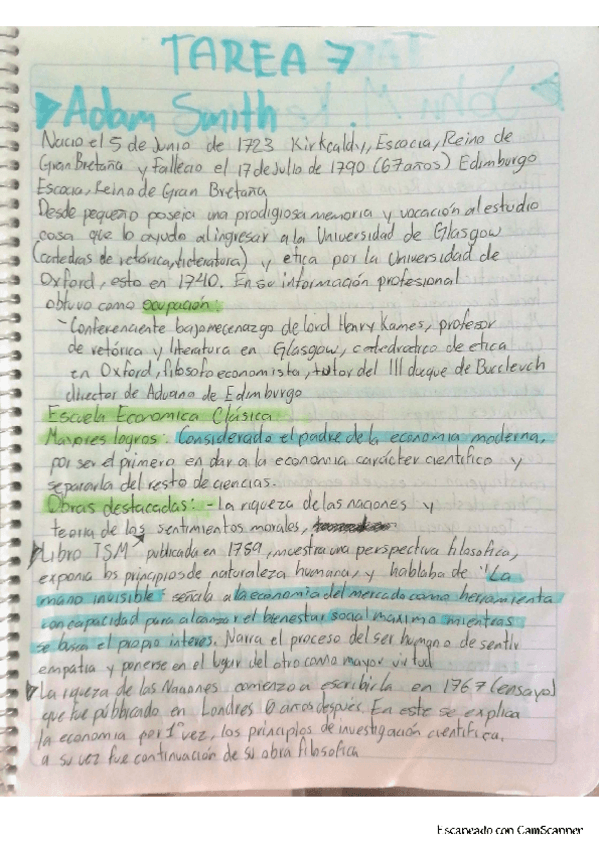 TAREA 7
Adam Smith
Nacio el 5 de Junio de 1723 Kirkcaldy, Escocia, Reino de
Gran Bretaña y Fallecio el 17 de Julio de 1790 (67 años) Edimburgo
Escocia, Reino de Gran Bretaña
Desde pequeño poseia una prodigiosa memoria y vocación al estudio
cosa que lo ayudo al ingresar a la Universidad de Glasgow
(catedras de retórica, literatura) y etica por la Universidad de
Oxford, esto en 1740. En su información profesional
obtuvo como ocupación:
- Conferenciante bajo mecenazgo de lord Henry Kames, profesor
de retórica y literatura en Glasgow, catedratico de etica
en Oxford, filosofo economista, tutor del III duque de Burcleuch
director de Aduana de Edimburgo
Escuela Economica Clásica
Mayores logros: Considerado el padre de la economia moderna,
por ser el primero en dar a la economia carácter cientifico y
separarla del resto de ciencias.
Obras destacadas: - La riqueza de las naciones y
teoria de los sentimientos morales,
Libro TSM publicada en 1759, muestra una perspectiva filosofica,
exponia los principios de naturaleza humana, y hablaba de "La
mano invisible" señala a la economia del mercado como herramienta
con capacidad para alcanzar el bienestar social maximo mientras
se busca el propio interes. Narra el proceso del ser humano de sentir
empatia y ponerse en el lugar del otro como mayor virtud
La riqueza de las Naciones comenzo a escribirla en 1767 (ensayo)
que fue públicado en Londres 6 años despues. En este se explica
la economia por 1° vez, los principios de investigación cientifica,
a su vez fue continuación de su obra filosofica
Escaneado con CamScanner